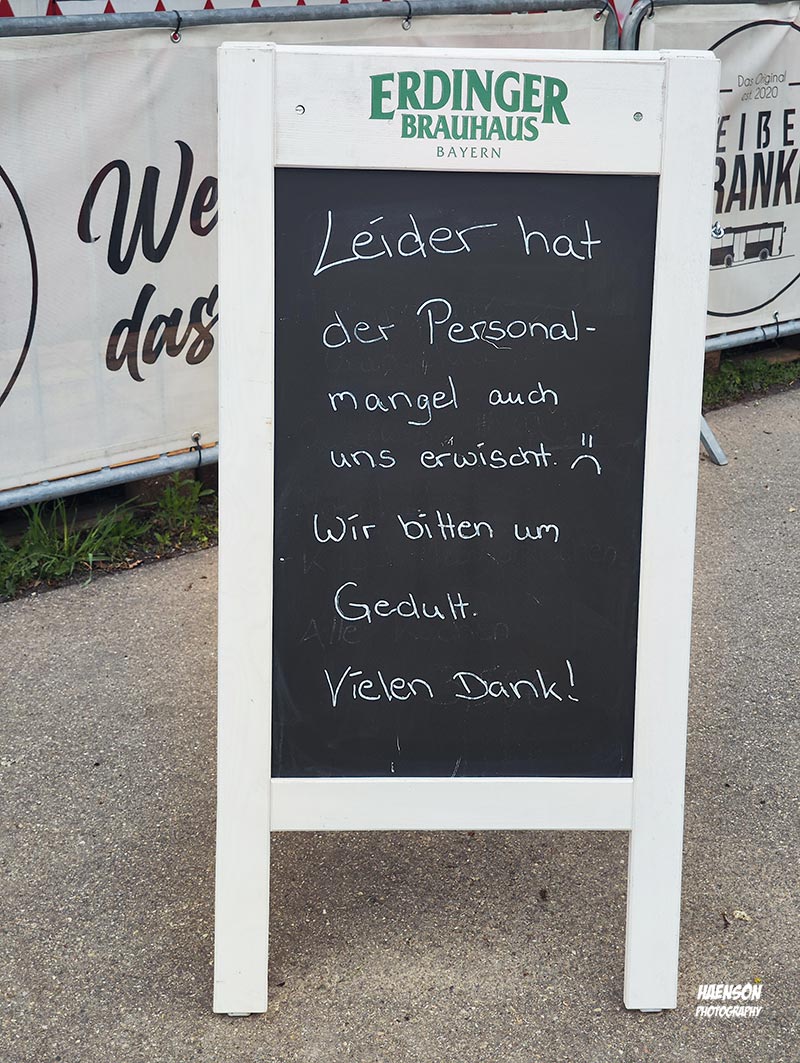 ERDINGER
BRAUHAUS
BAYERN
Leider hat
der Personal-
mangel auch
uns erwischt. :(
Wir bitten um
Gedult.
Vielen Dank!
We
das
Das Original
est. 2020
HAENSON
PHOTOGRAPHY